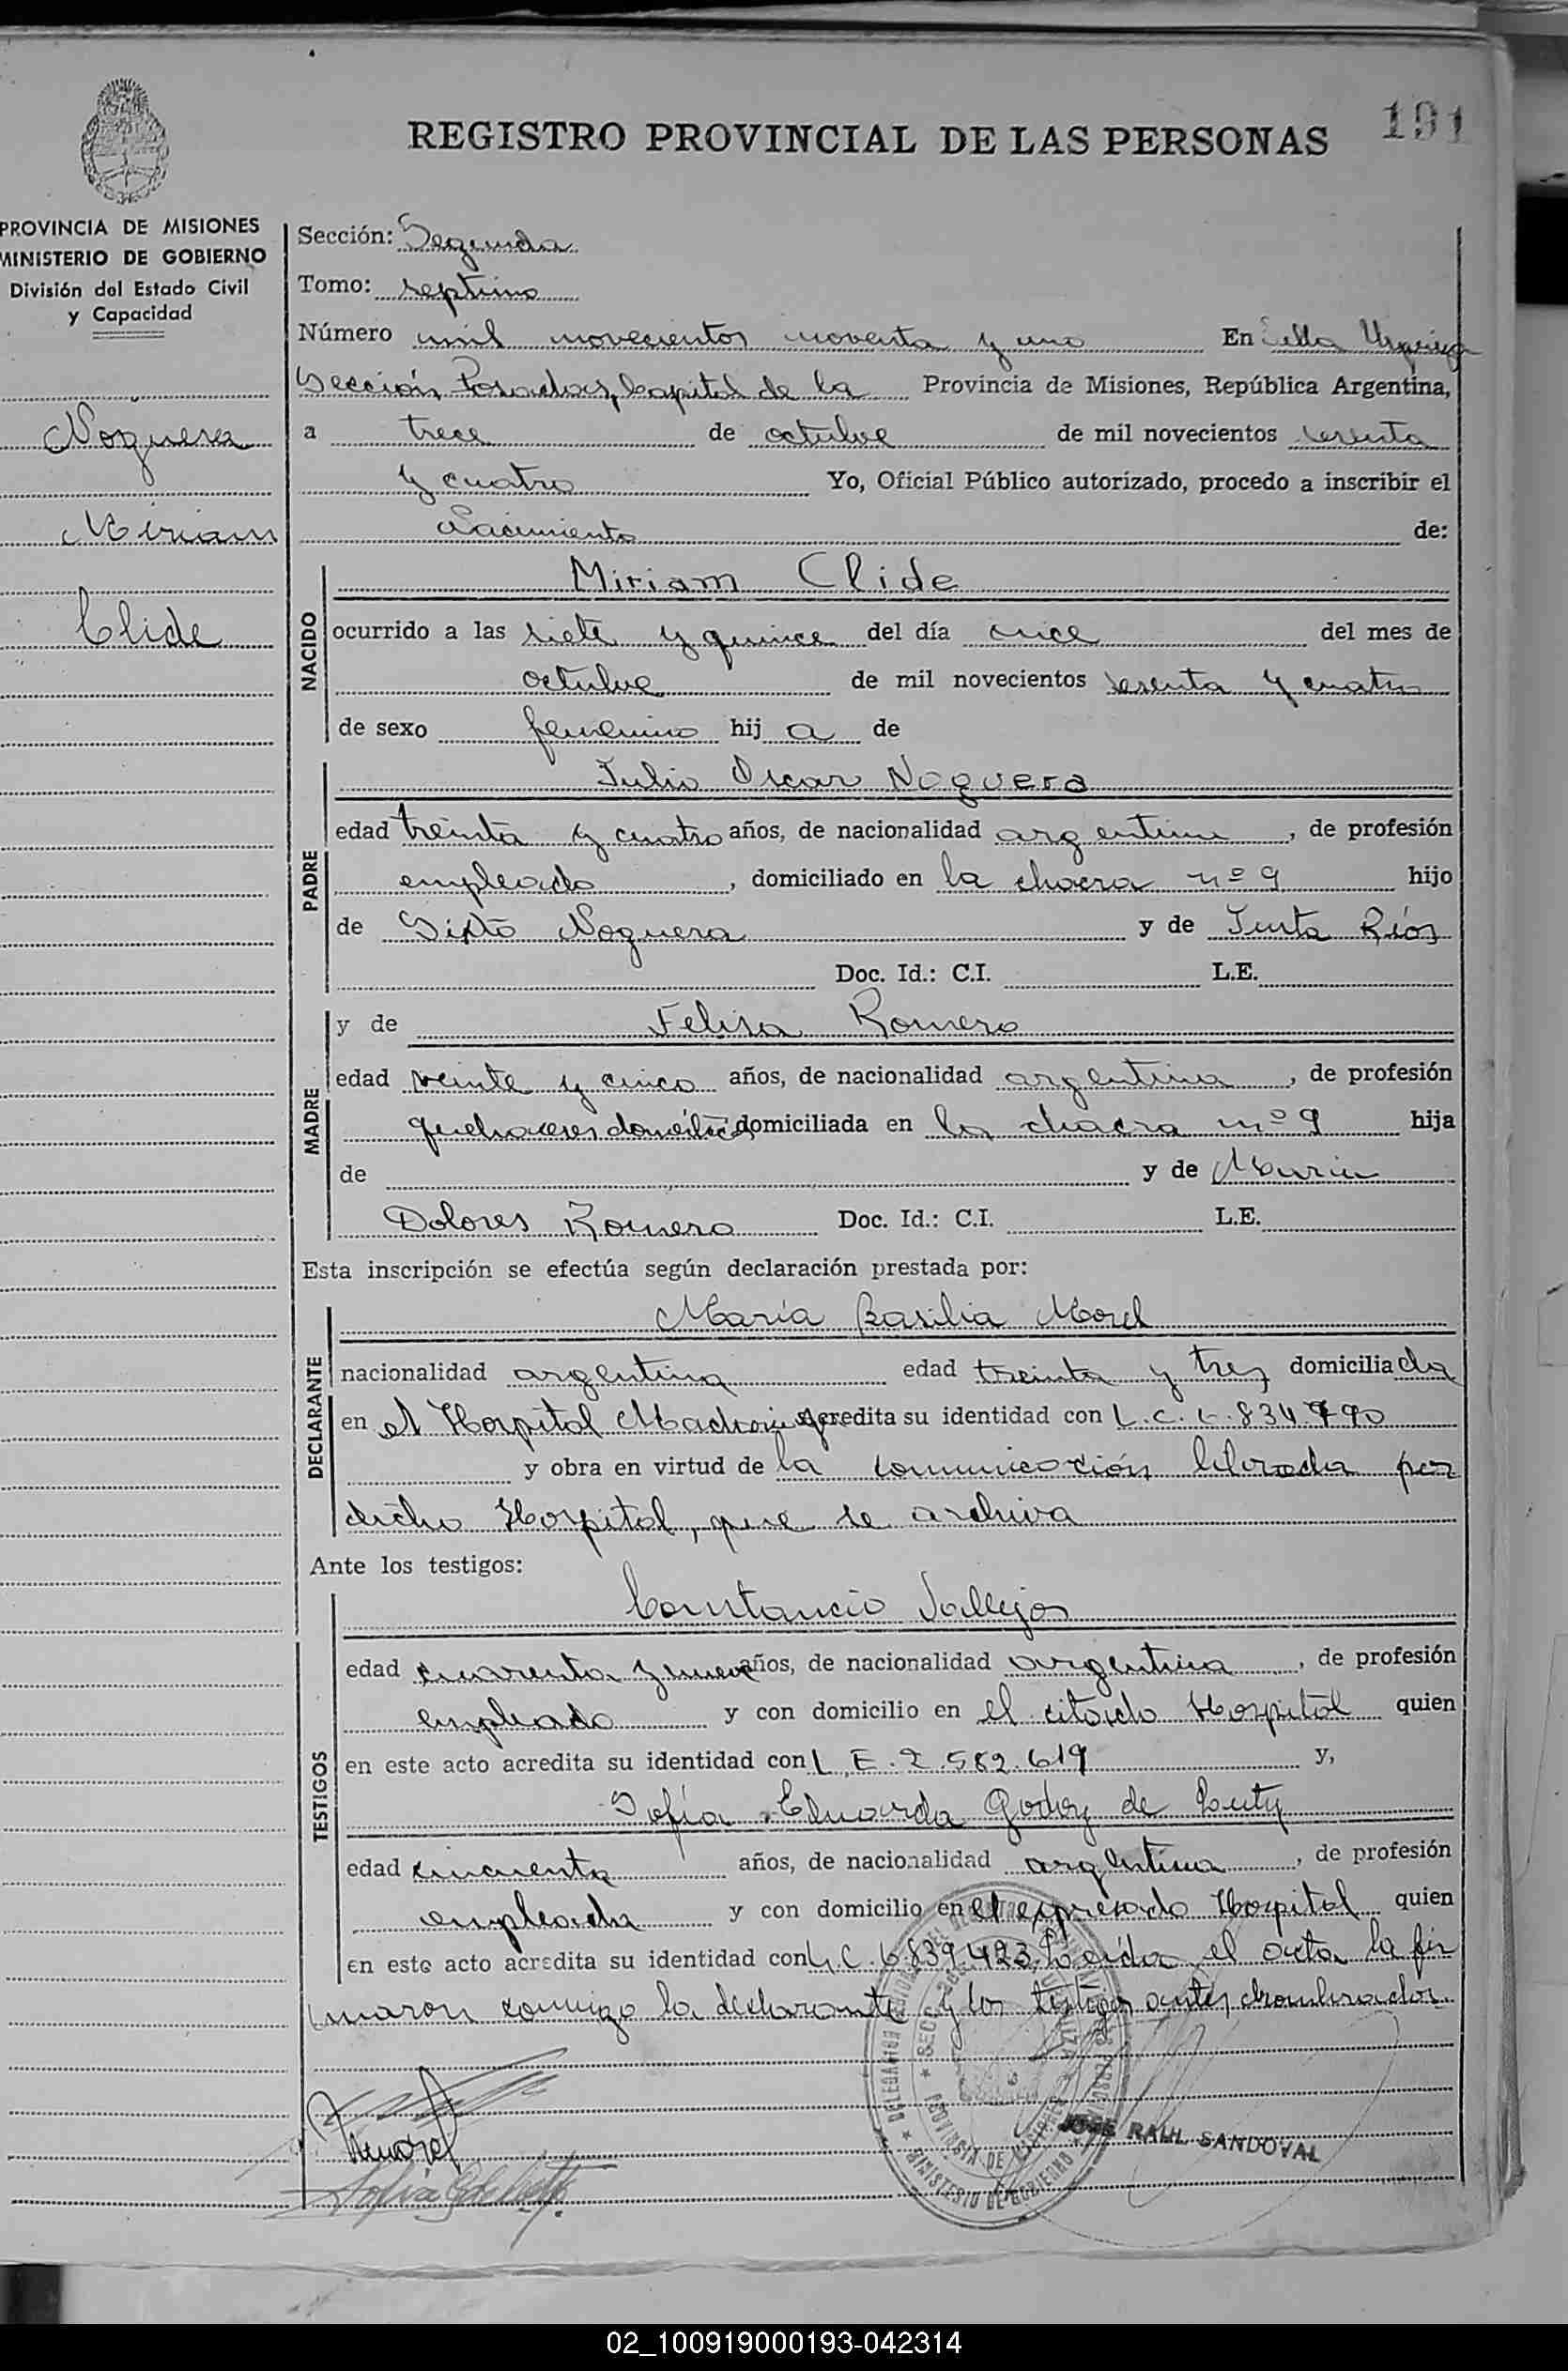 191
REGISTRO PROVINCIAL DE LAS PERSONAS
PROVINCIA DE MISIONES
MINISTERIO DE GOBIERNO
División del Estado Civil
y Capacidad
Noguera
Miriam
Clide
Sección: Segunda
Tomo: septimo
Número mil novecientos noventa y uno En Villa Urquiza
Sección, Posadas, Capital de la Provincia de Misiones, República Argentina,
a trece de octubre de mil novecientos sesenta
y cuatro Yo, Oficial Público autorizado, procedo a inscribir el
Nacimiento de:
NACIDO
Miriam Clide
ocurrido a las siete y quince del día once del mes de
octubre de mil novecientos sesenta y cuatro
de sexo femenino hij a de
PADRE
Julio Oscar Noguera
edad treinta y cuatro años, de nacionalidad argentina, de profesión
empleado, domiciliado en la chacra nº 9 hijo
de Sixto Noguera y de Justa Ríos
Doc. Id.: C.I. L.E.
MADRE
y de Felisa Romero
edad veinte y cinco años, de nacionalidad argentina, de profesión
quehaceres domésticos domiciliada en la chacra nº 9 hija
de y de María
Dolores Romero Doc. Id.: C.I. L.E.
Esta inscripción se efectúa según declaración prestada por:
DECLARANTE
María Basilia Morel
nacionalidad argentina edad treinta y tres domiciliada
en el Hospital Madariaga acredita su identidad con L.C. 6.834.790
y obra en virtud de la comunicación librada por
dicho Hospital, que se archiva
Ante los testigos:
TESTIGOS
Constancio Vallejos
edad cuarenta y nueve años, de nacionalidad argentina, de profesión
empleado y con domicilio en el citado Hospital quien
en este acto acredita su identidad con L.E. 2.582.619 y,
Sofía Eduarda Godoy de
edad cincuenta años, de nacionalidad argentina, de profesión
empleada y con domicilio en el expresado Hospital quien
en este acto acredita su identidad con L.C. 6.839.423. Leída el acta la fir
maron conmigo la declarante y los testigos antes nombrados.
JOSE RAUL SANDOVAL
02_100919000193-042314